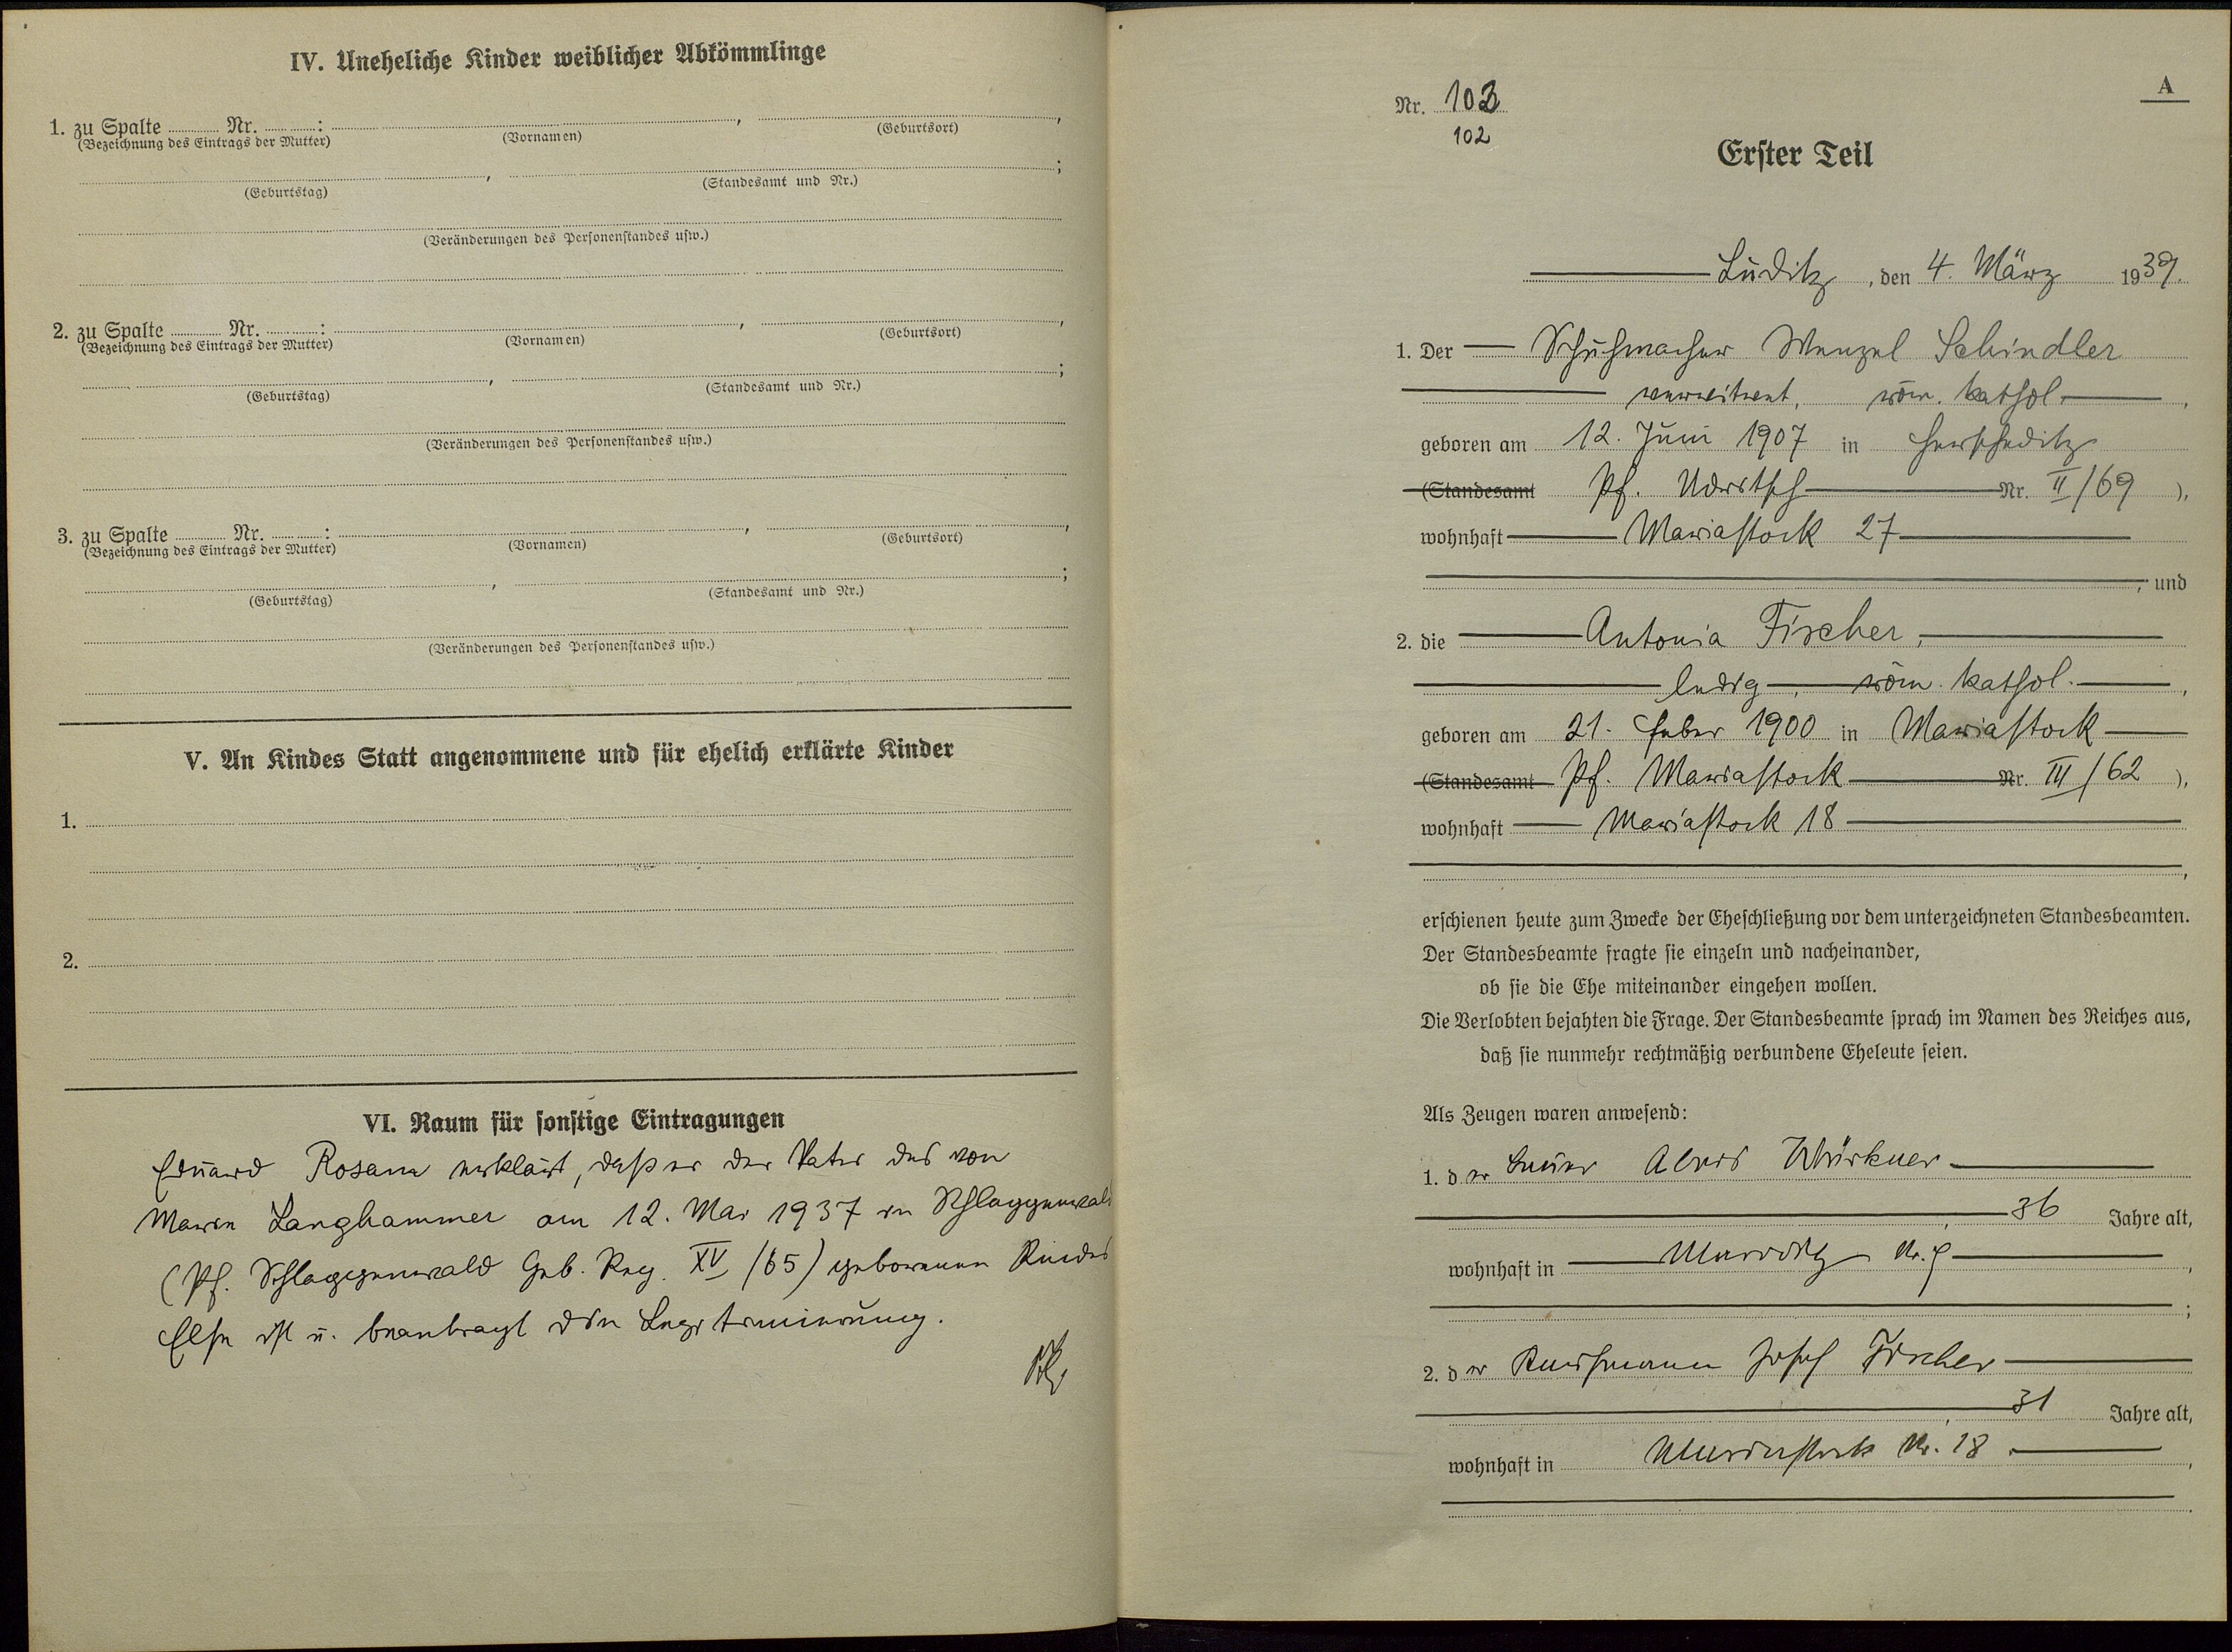 IV. Uneheliche Kinder weiblicher Abkömmlinge
1. zu Spalte Nr. : , ,
(Bezeichnung des Eintrags der Mutter) (Vornamen) (Geburtsort)
, ;
(Geburtstag) (Standesamt und Nr.)
(Veränderungen des Personenstandes usw.)
2. zu Spalte Nr. : , ,
(Bezeichnung des Eintrags der Mutter) (Vornamen) (Geburtsort)
, ;
(Geburtstag) (Standesamt und Nr.)
(Veränderungen des Personenstandes usw.)
3. zu Spalte Nr. : , ,
(Bezeichnung des Eintrags der Mutter) (Vornamen) (Geburtsort)
, ;
(Geburtstag) (Standesamt und Nr.)
(Veränderungen des Personenstandes usw.)
V. An Kindes Statt angenommene und für ehelich erklärte Kinder
1.
2.
VI. Raum für sonstige Eintragungen
Eduard Rosam erklärt, daß er der Vater des von
Marie Langhammer am 12. Mai 1937 in Schlaggenwald
(Pf. Schlaggenwald Geb. Reg. XV /65) geborenen Kindes
Else ist u. beantragt die Legitimierung.
A
Nr. 103
102
Erster Teil
Luditz, den 4. März 1939.
1. Der Schuhmacher Wenzel Schindler
verwitwet, röm. kathol.,
geboren am 12. Juni 1907 in Herscheditz
(Standesamt Pf. Udritsch Nr. II/69),
wohnhaft Mariastock 27
, und
2. die Antonia Fischer,
ledig, röm. kathol.,
geboren am 21. Feber 1900 in Mariastock
(Standesamt Pf. Mariastock Nr. III/62),
wohnhaft Mariastock 18
,
erschienen heute zum Zwecke der Eheschließung vor dem unterzeichneten Standesbeamten.
Der Standesbeamte fragte sie einzeln und nacheinander,
ob sie die Ehe miteinander eingehen wollen.
Die Verlobten bejahten die Frage. Der Standesbeamte sprach im Namen des Reiches aus,
daß sie nunmehr rechtmäßig verbundene Eheleute seien.
Als Zeugen waren anwesend:
1. der Alois
, 36 Jahre alt,
wohnhaft in Nr. 9,
;
2. der Josef Fischer
, 31 Jahre alt,
wohnhaft in Mariastock Nr. 18,
.